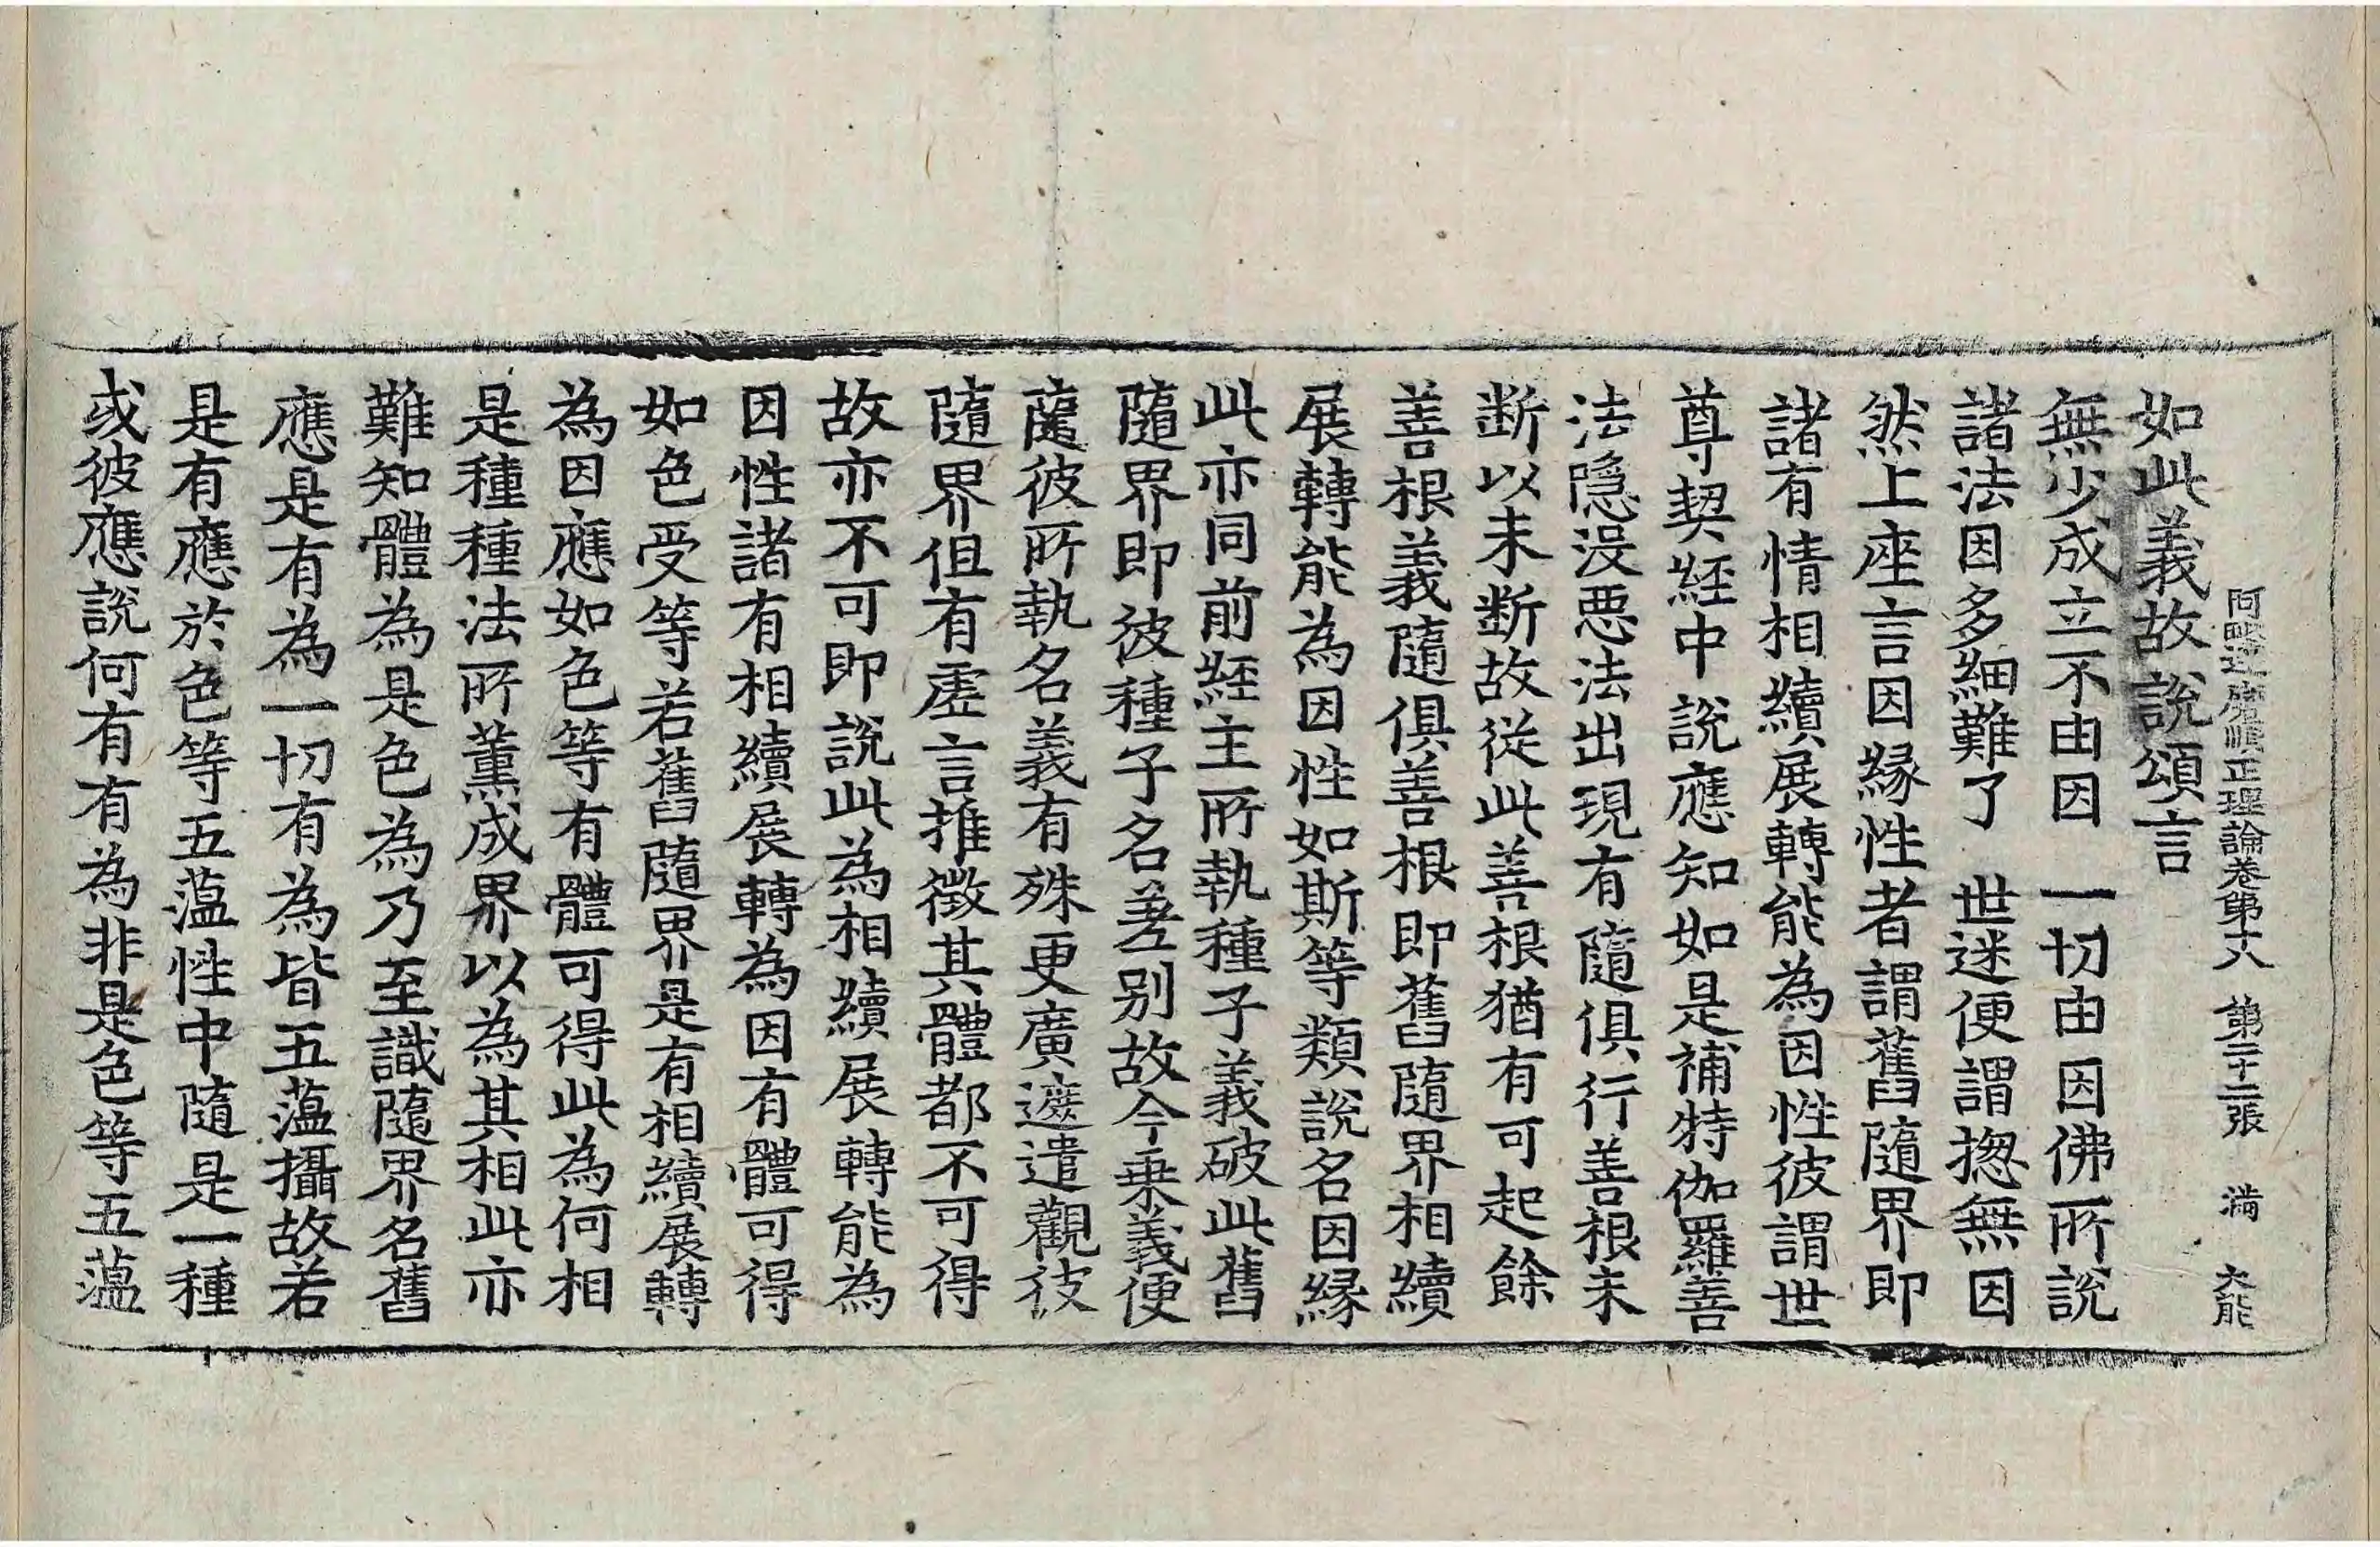 阿毗達磨順正理論卷第十八　第二十二張　滿　大能
如此義故說頌言
無少成立不由因　一切由因佛所說
諸法因多細難了　世迷便謂揔無因
然上座言因緣性者謂舊隨界即
諸有情相續展轉能為因性彼謂世
尊契經中說應知如是補特伽羅善
法隱沒惡法出現有隨俱行善根未
斷以未斷故從此善根猶有可起餘
善根義隨俱善根即舊隨界相續
展轉能為因性如斯等類說名因緣
此亦同前經主所執種子義破此舊
隨界即彼種子名差別故今乘義便
隨彼所執名義有殊更廣遮遣觀彼
隨界但有虛言推徵其體都不可得
故亦不可即說此為相續展轉能為
因性諸有相續展轉為因有體可得
如色受等若舊隨界是有相續展轉
為因應如色等有體可得此為何相
是種種法所薰成界以為其相此亦
難知體為是色為乃至識隨界名舊
應是有為一切有為皆五薀攝故若
是有應於色等五薀性中隨是一種
或彼應說何有有為非是色等五薀